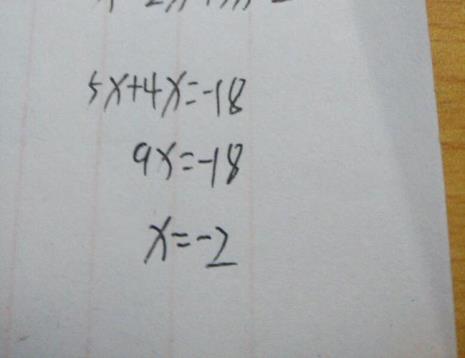 5x+4x=-18
9x=-18
x=-2